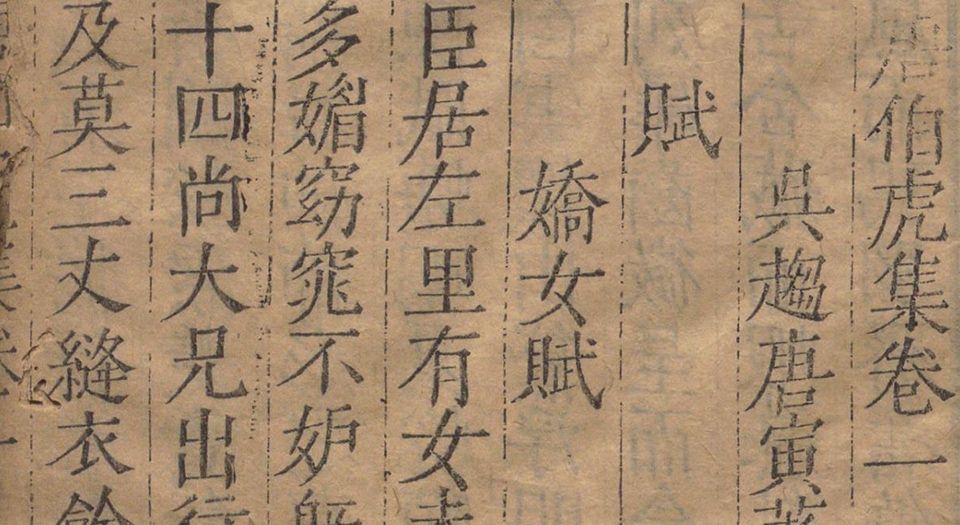 唐伯虎集卷一
吳趨唐寅著
賦
嬌女賦
臣居左里有女未
多媚窈窕不妒
十四尚大兄出行
及莫三丈縫衣餘